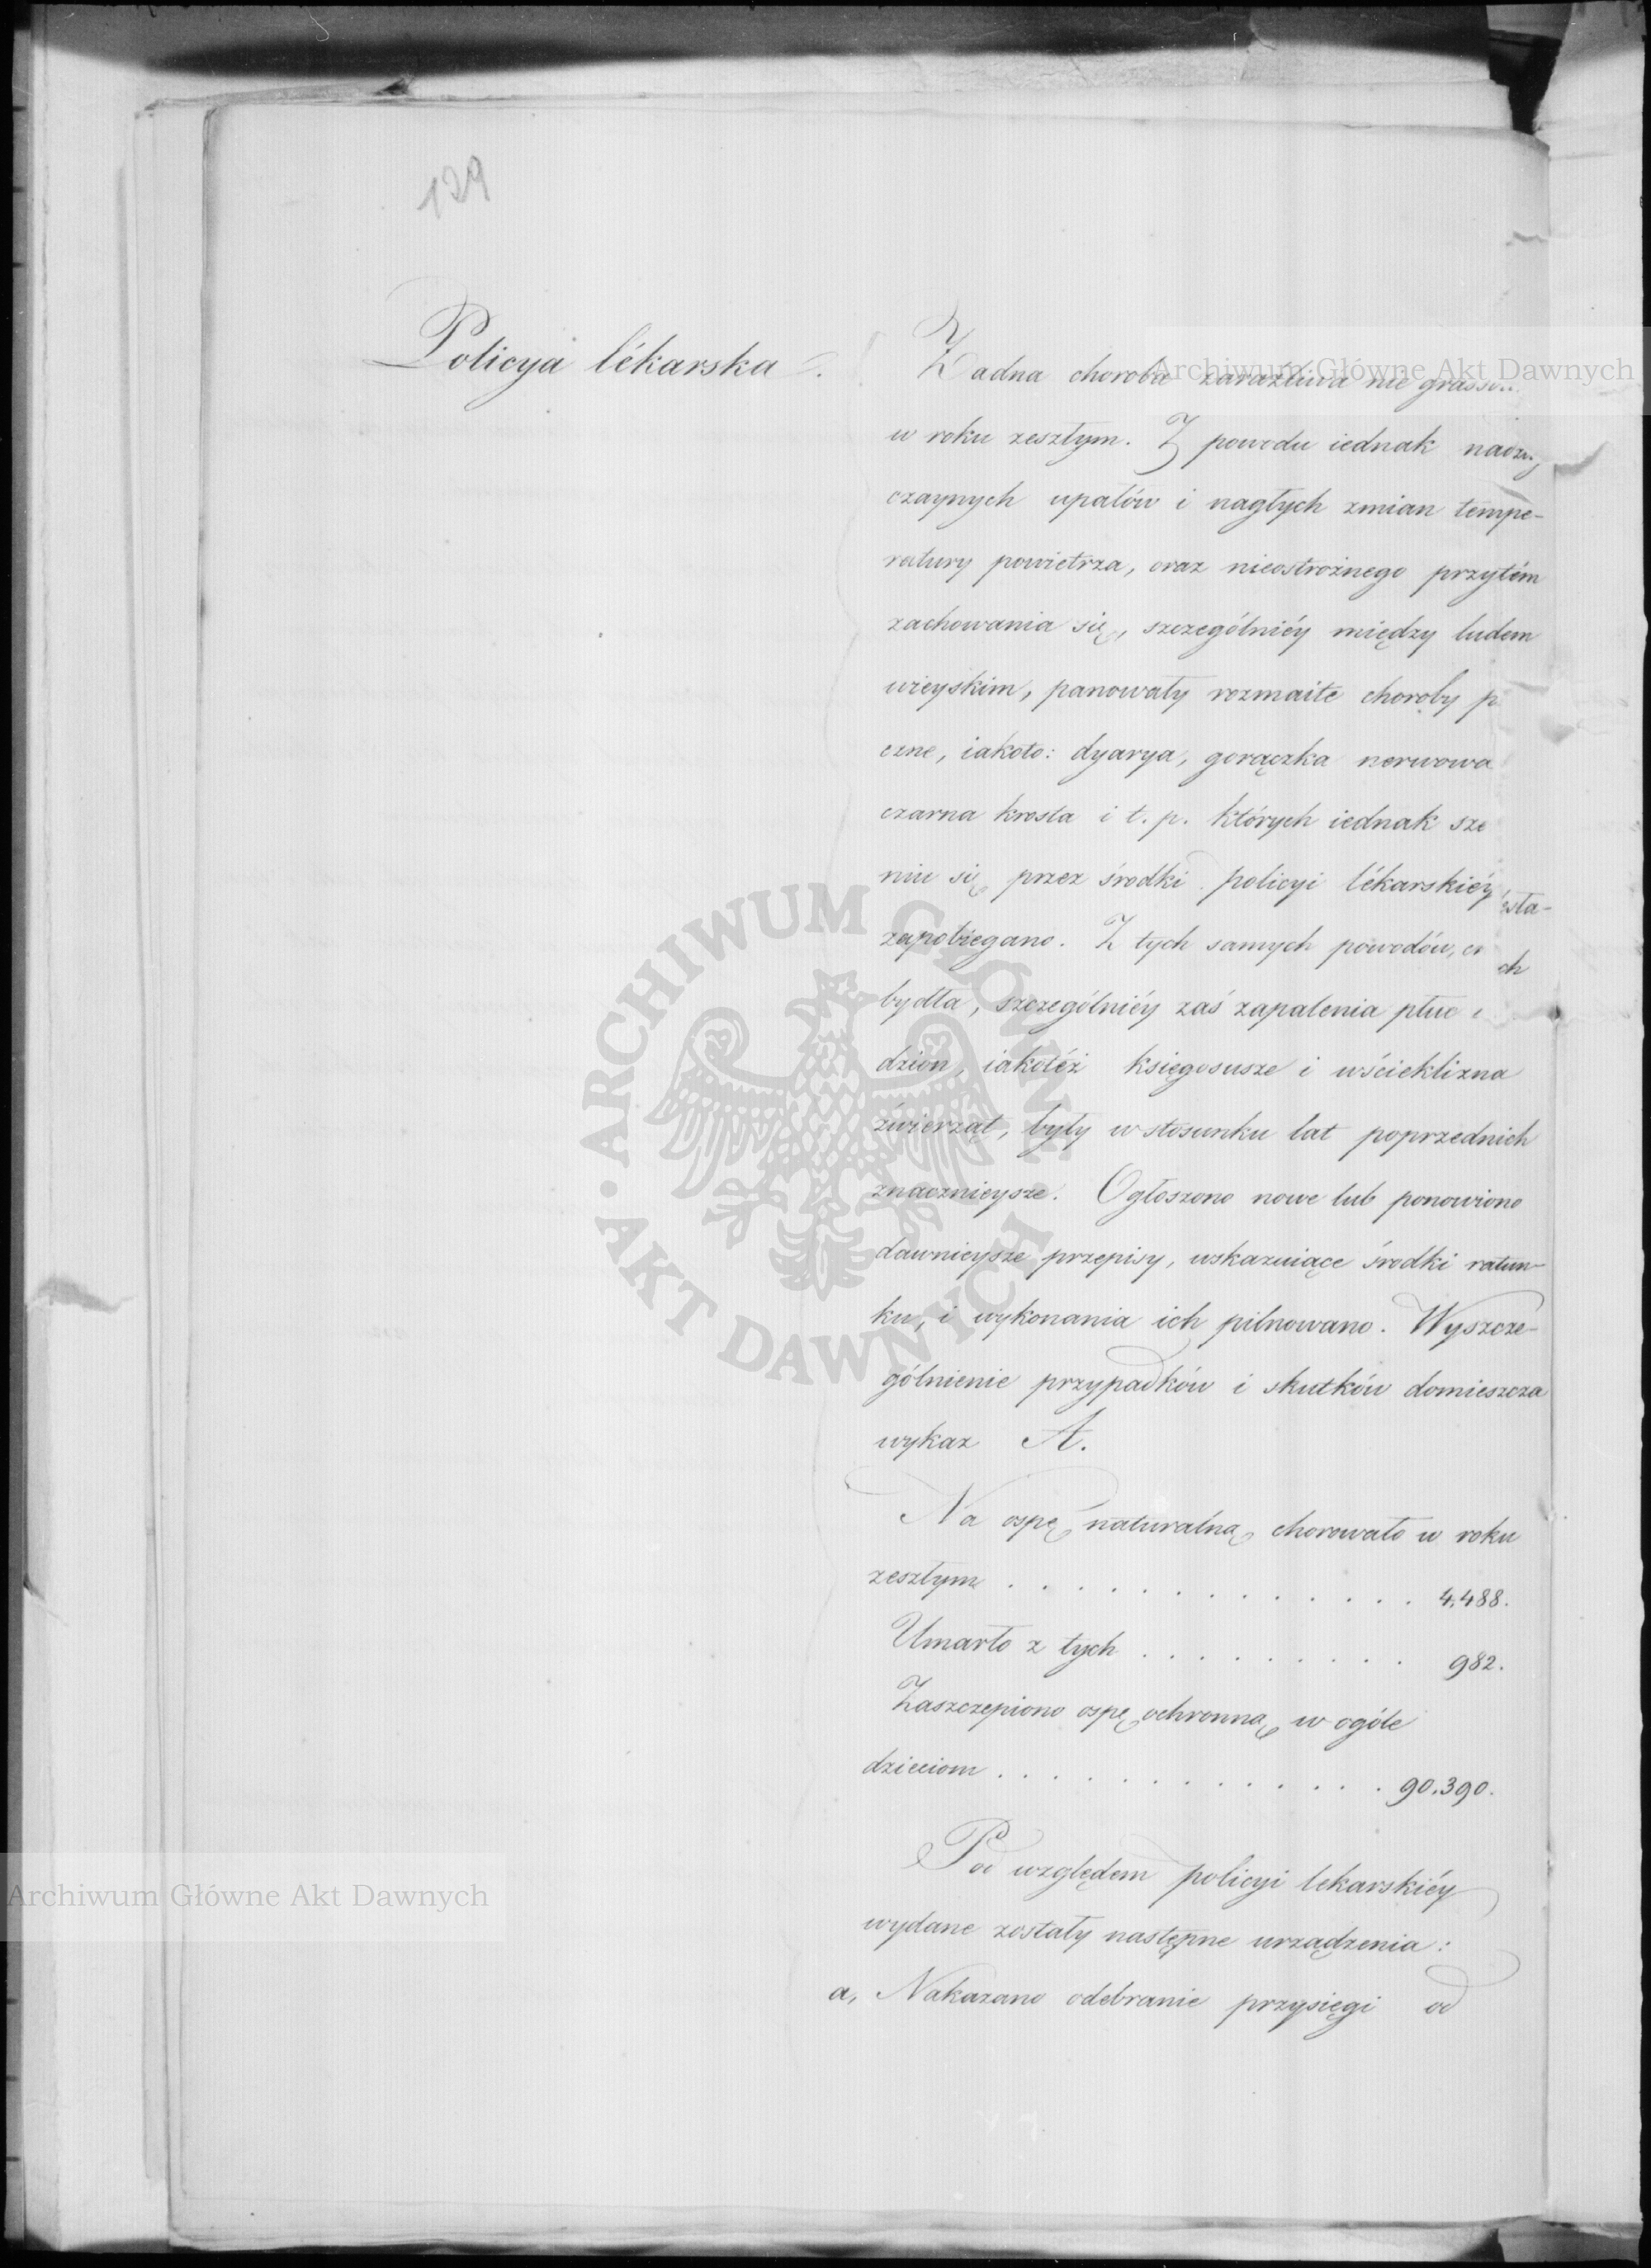 129
Policya lékarska.
Żadna choroba zaraźliwa nie grasso
w roku zeszłym. Z powodu iednak nadzwy
czaynych upałów i nagłych zmian tempe-
ratury powietrza, oraz nieostrożnego przytém
zachowania się, szczególniéy między ludem
wieyskim, panowały rozmaite choroby p
czne, iakoto: dyarya, gorączka nerwowa
czarna krosta i t. p. których iednak sze
niu się przez środki policyi lékarskiéy
sła-
zapobiegano. Z tych samych powodów,
ch
bydła, szczególniéy zaś zapalenia płuc
dzion, iakotéż księgosusze i wścieklizna
źwierząt, były w stosunku lat poprzednich
znacznieysze. Ogłoszono nowe lub ponowiono
dawnieysze przepisy, wskazuiące środki ratun-
ku, i wykonania ich pilnowano. Wyszcze-
gólnienie przypadków i skutków domieszcza
wykaz A.
Na ospę naturalną chorowało w roku
zeszłym . . . . . . . . . . . . . . 4,488.
Umarło z tych . . . . . . . . . 982.
Zaszczepiono ospę ochronną w ogóle
dzieciom . . . . . . . . . . . . . 90.390.
Pod względem policyi lekarskiéy
wydane zostały następne urządzenia:
a, Nakazano odebranie przysięgi od
Archiwum Główne Akt Dawnych
ARCHIWUM GŁÓWNE
AKT DAWNYCH
Archiwum Główne Akt Dawnych